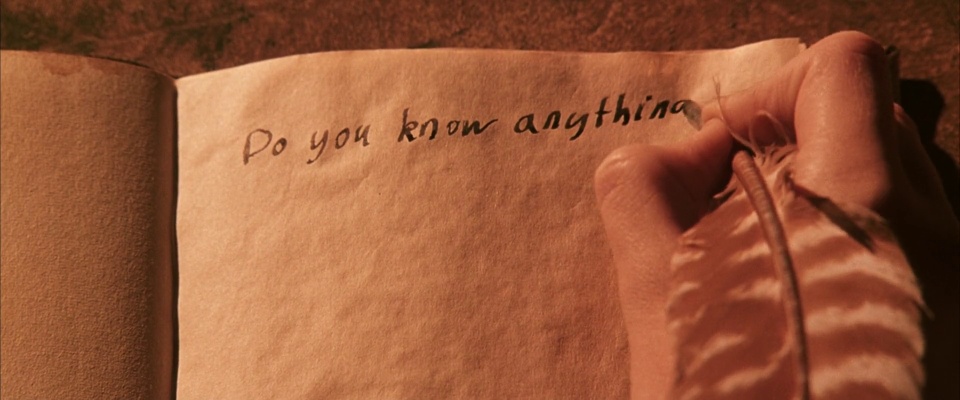 Do you know anything